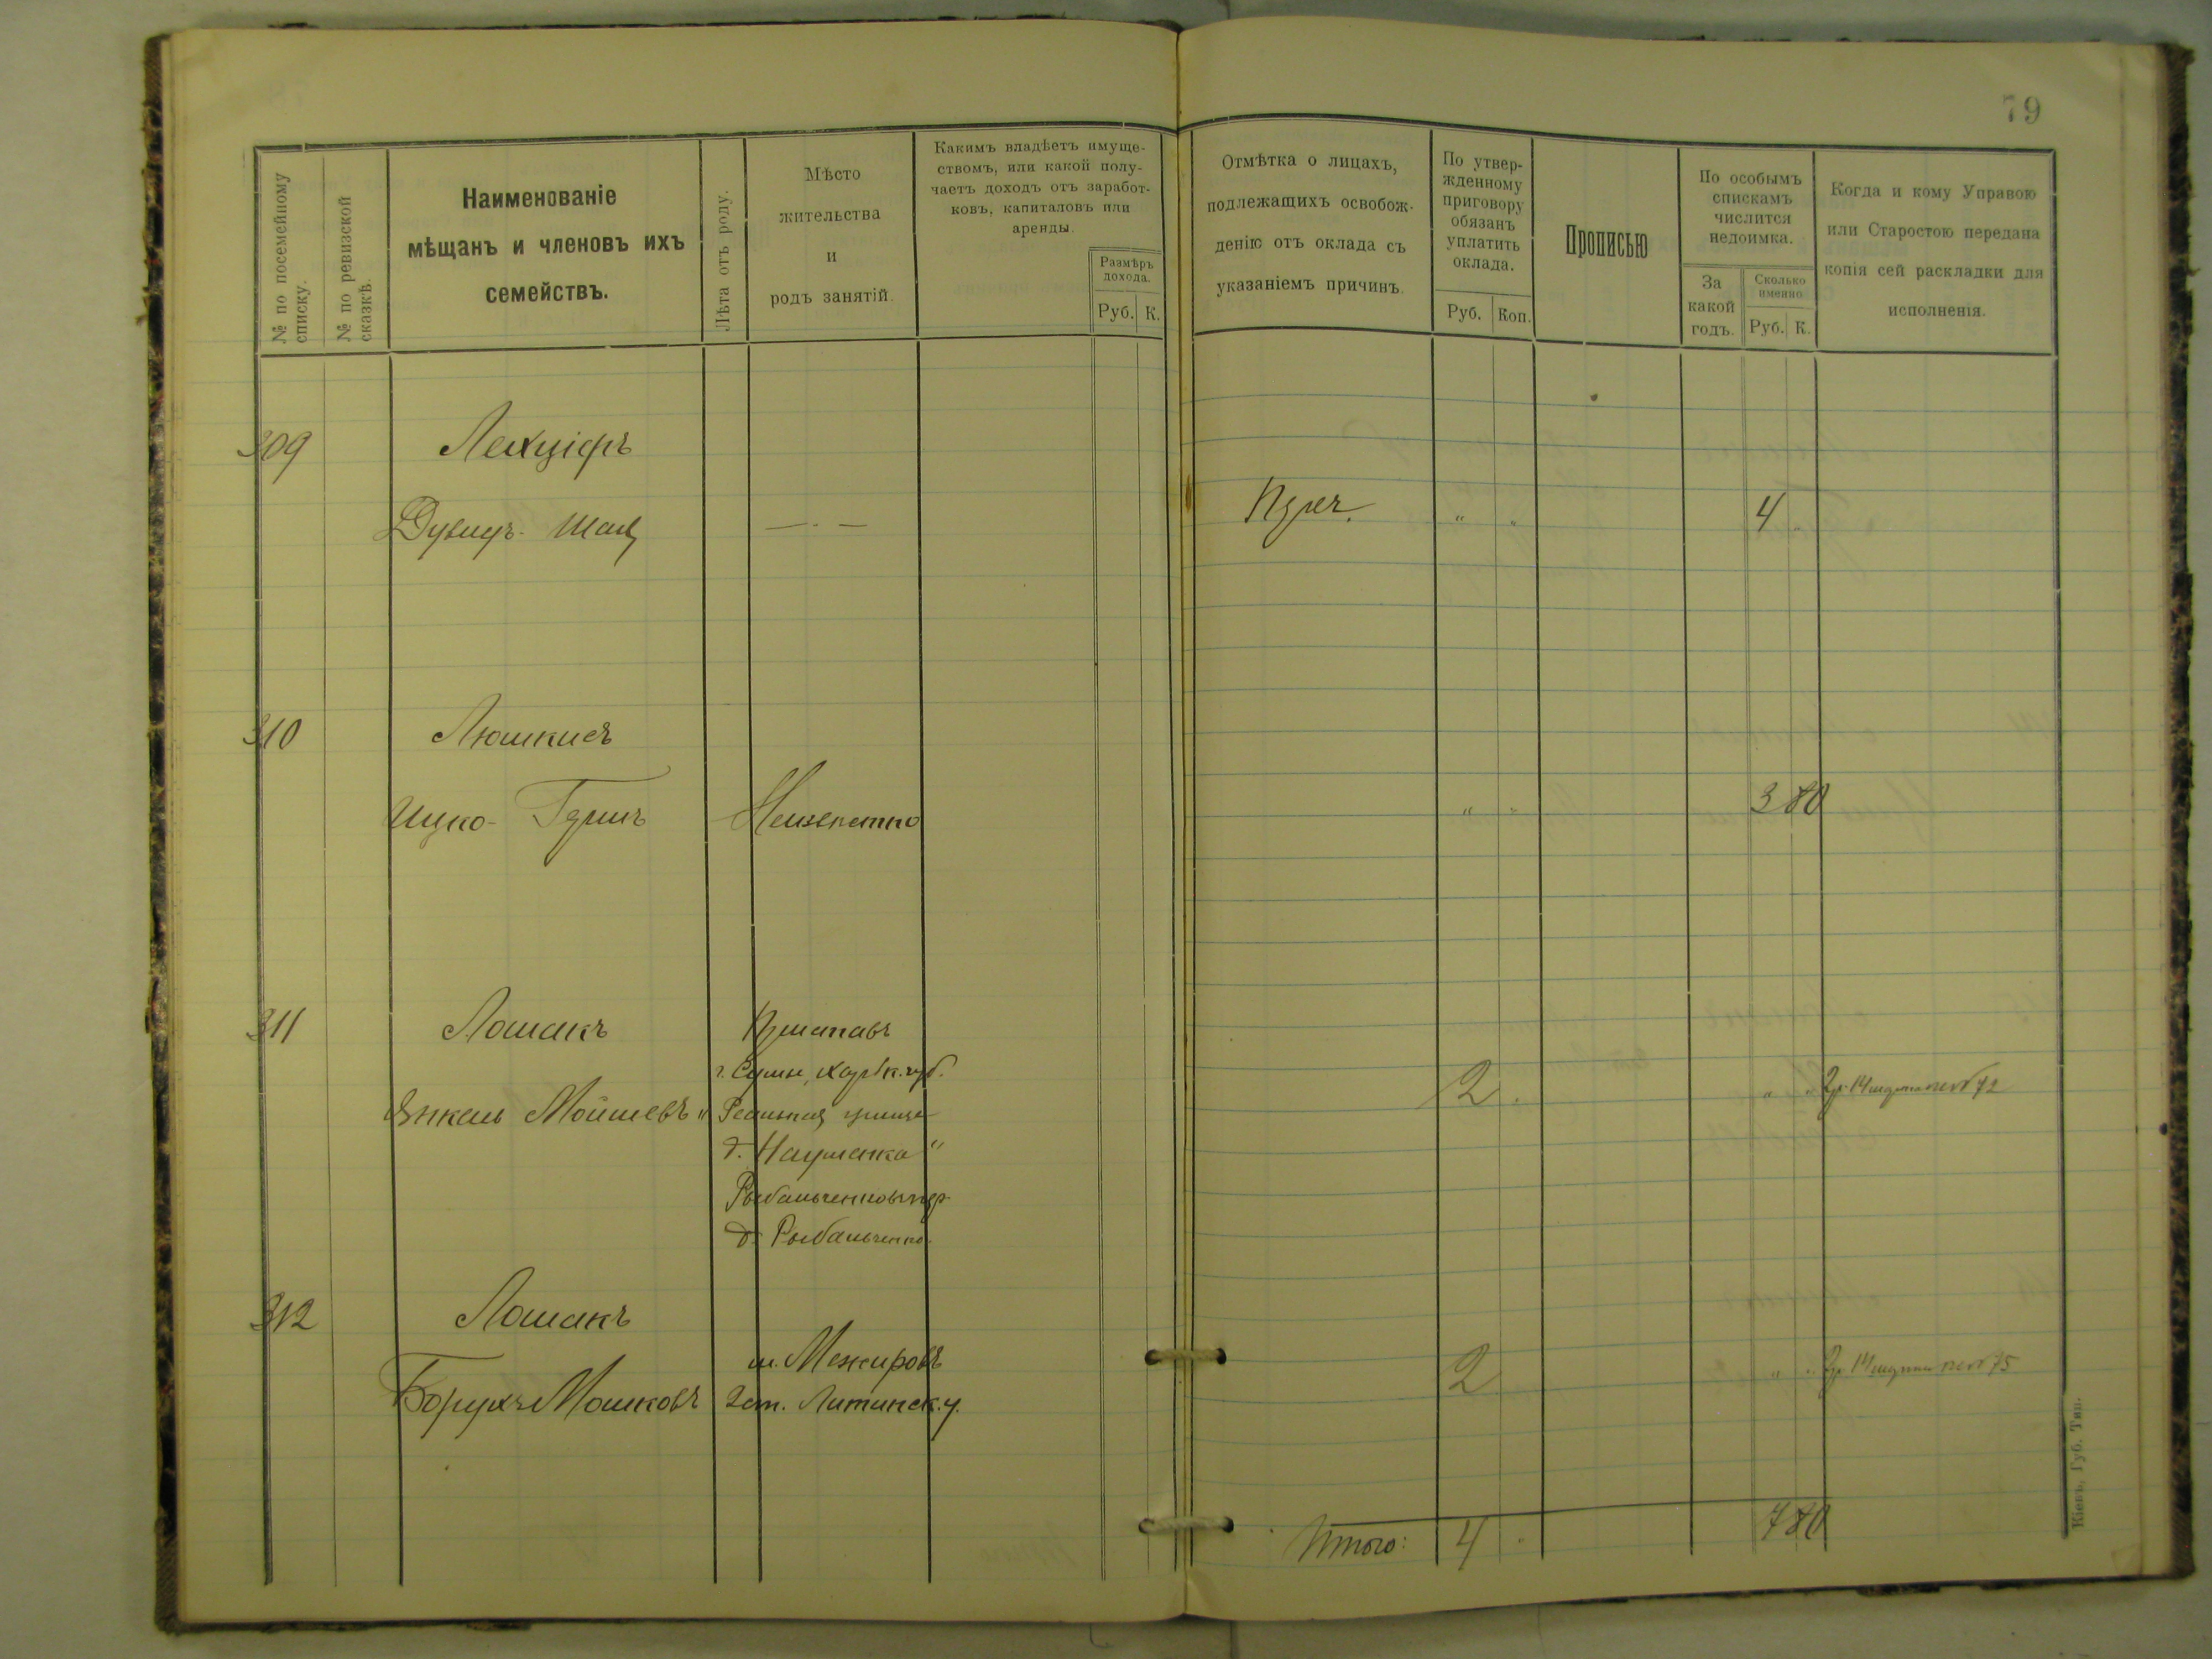 79
№ по посемейному списку.
№ по ревизской сказкѣ.
Наименованіе
мѣщанъ и членовъ ихъ
семействъ.
Лѣта отъ роду.
Мѣсто
жительства
и
родъ занятій.
Какимъ владѣетъ имуще-
ствомъ, или какой полу-
чаетъ доходъ отъ заработ-
ковъ, капиталовъ или
аренды.
Размѣръ
дохода.
Руб. К.
Отмѣтка о лицахъ,
подлежащихъ освобож-
денію отъ оклада съ
указаніемъ причинъ.
По утвер-
жденному
приговору
обязанъ
уплатить
оклада.
Руб. Коп.
Прописью
По особымъ
спискамъ
числится
недоимка.
За
какой
годъ.
Сколько
именно
Руб. К.
Когда и кому Управою
или Старостою передана
копія сей раскладки для
исполненія.
309
— . —
" "
4
310
Люшкисъ
Ицко-
Неизвестно
" "
3 80
311
Лошакъ
г. Сумы, Харьк. губ.
Янкель Мойшевъ
д. Науменка "
д. Рыбальченко.
2 .
"
72
312
Лошакъ
м. Межировъ
Борухъ Мошковъ
2 ст. Литинск. у.
2
"
75
Итого: 4 .
7 80
Кіевъ, Губ. Тип.